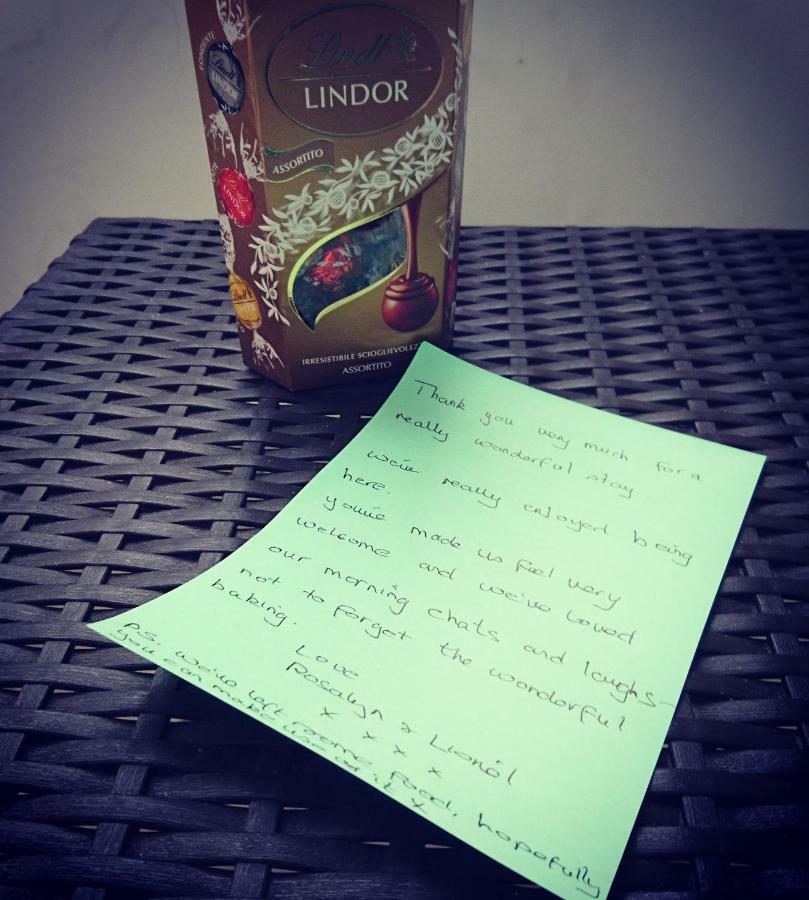 Lindt
LINDOR
ASSORTITO
FONDENTE
Lindt
LINDOR
LINDOR
Lindt
IRRESISTIBILE SCIOGLIEVOLEZ
ASSORTITO
Thank you very much for a
really wonderful stay.
We've really enjoyed being
here.
You've made us feel very
welcome and we've loved
our morning chats and laughs-
not to forget the wonderful
baking.
Love
Rosalyn & Lionel
x x x x
PS. We've left some food, hopefully
you can make use of it x